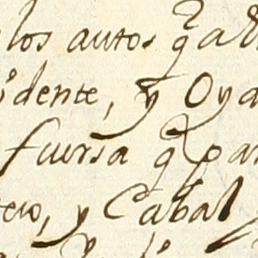 los autos q̃ a
dente, y Oya
fuersa q̃ pa
y Cabal